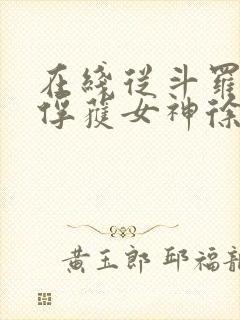 在綫從斗羅
俘獲女神徐
黃玉郎 邱福龍